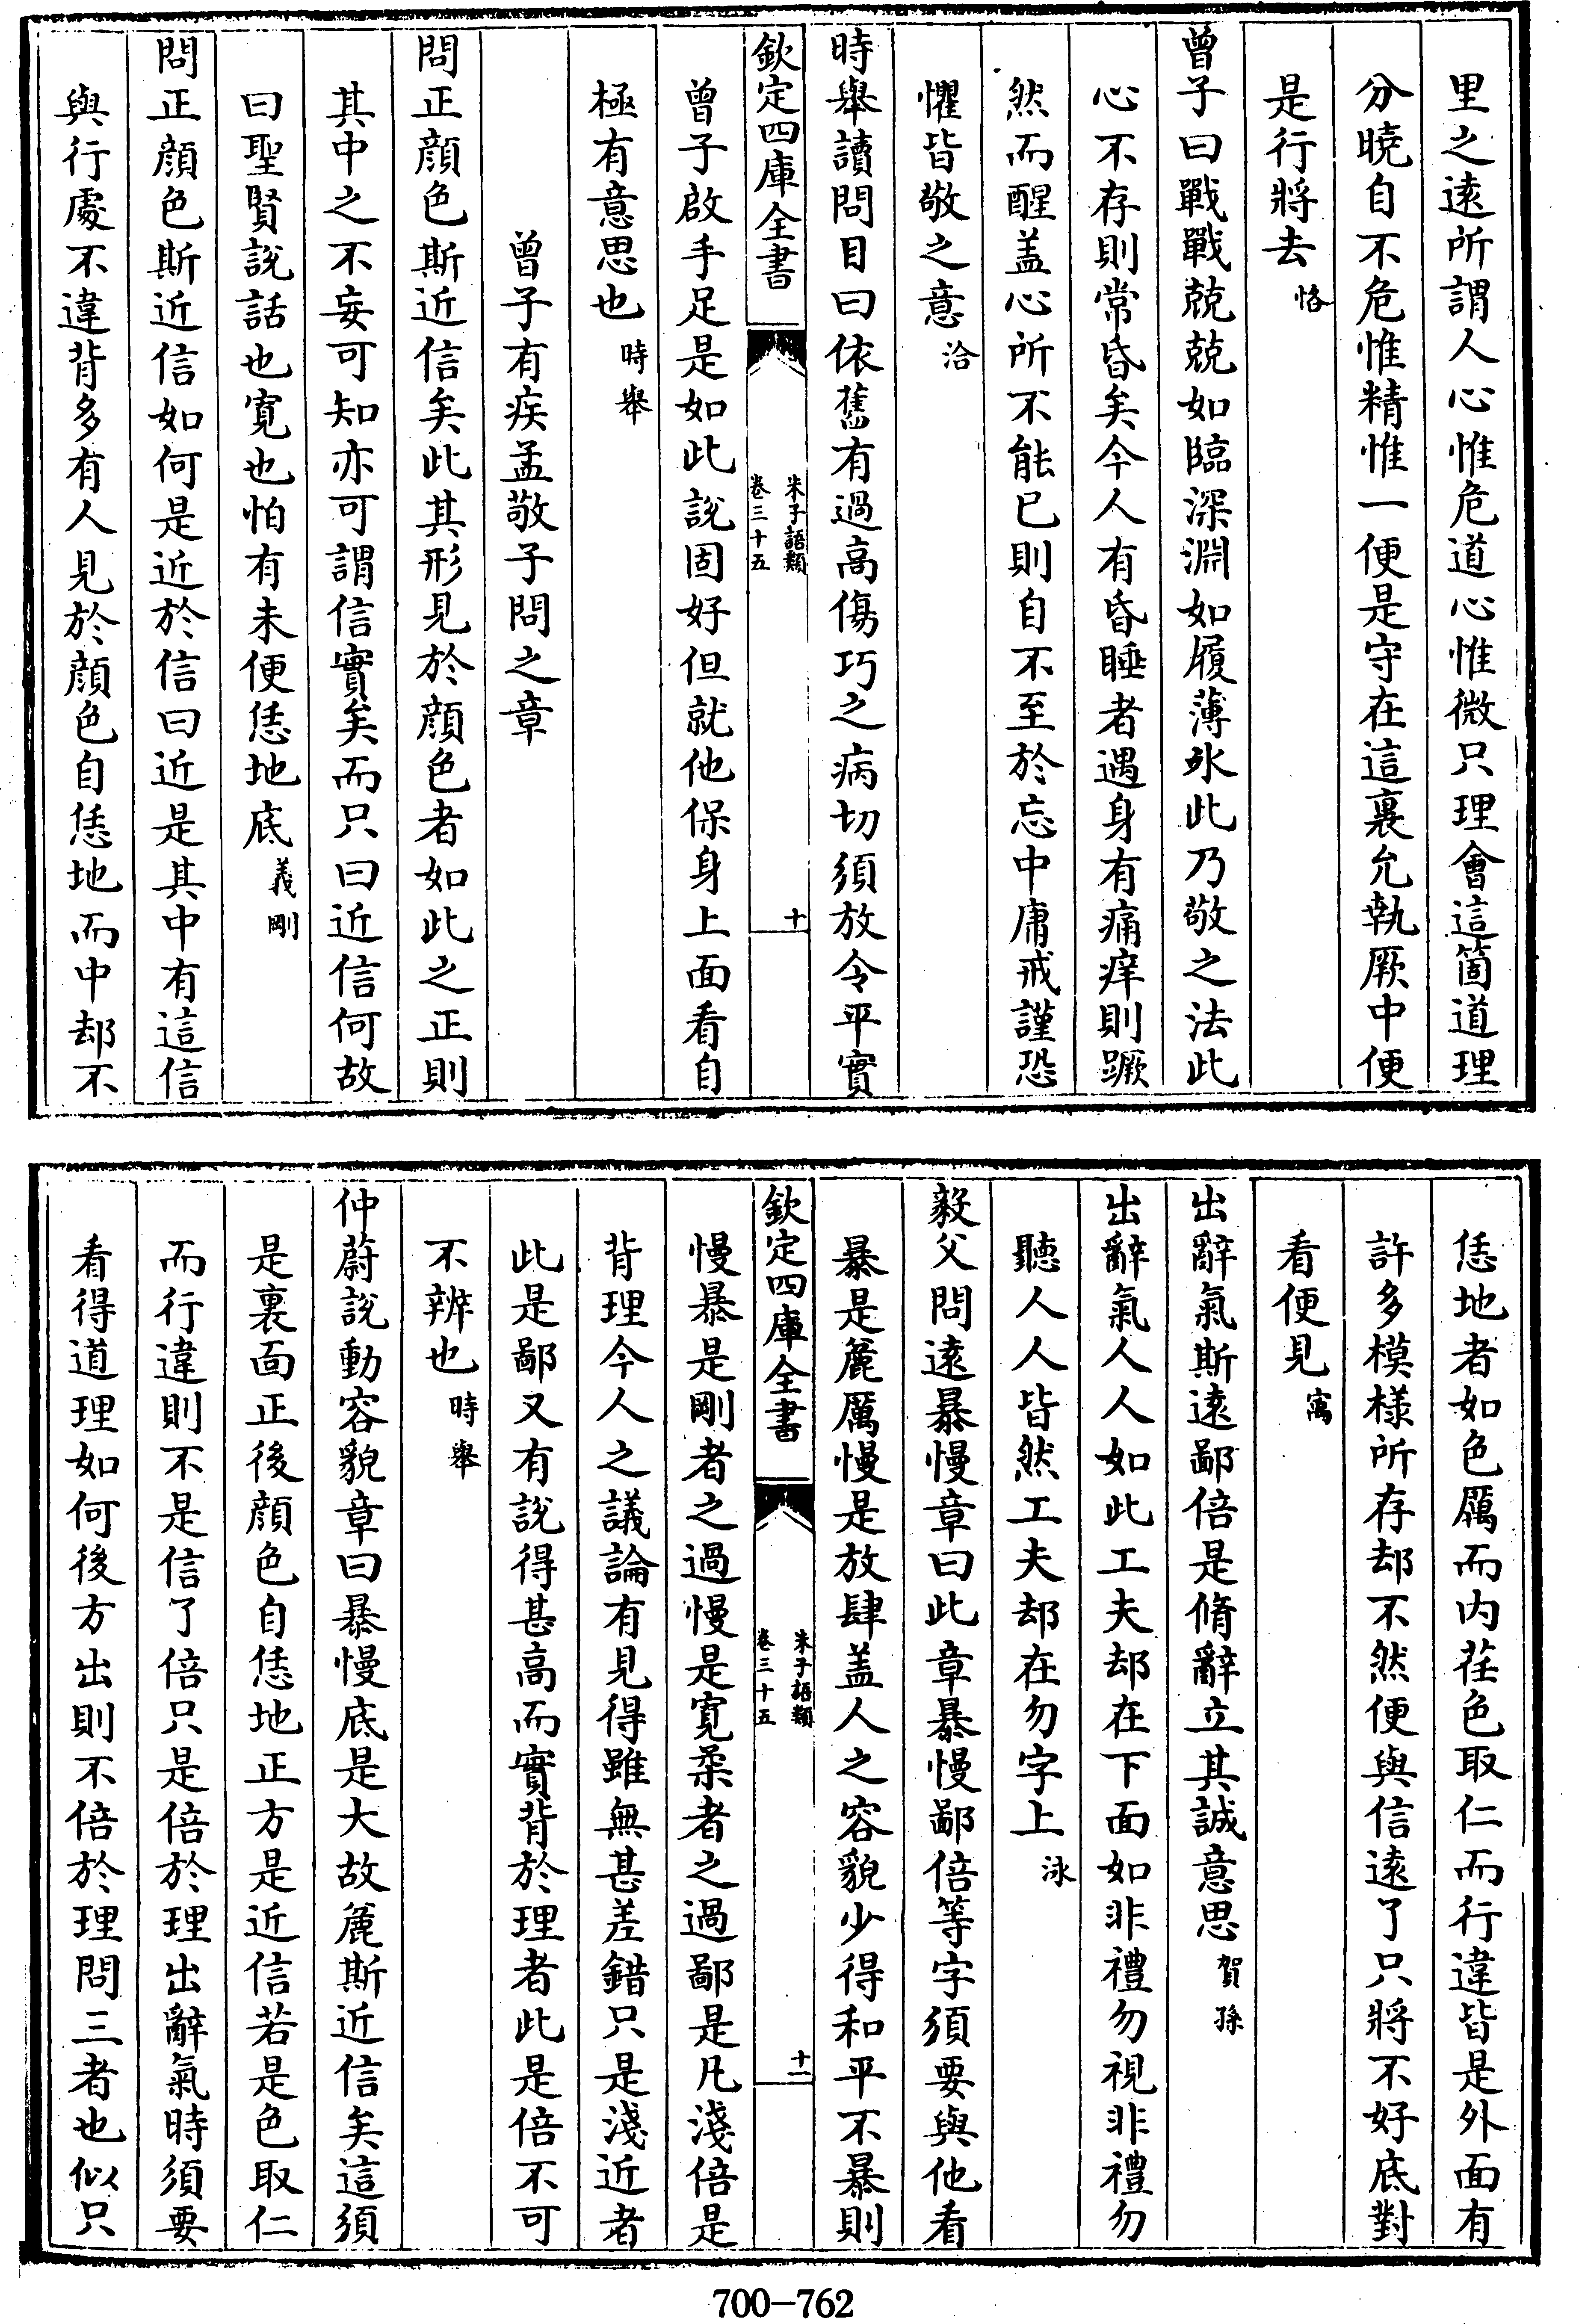 里之逺所謂人心惟危道心惟微只理會這箇道理
分曉自不危惟精惟一便是守在這裏允執厥中便
是行將去恪
曾子曰戰戰兢兢如臨深淵如履薄氷此乃敬之法此
心不存則常昏矣今人有昏睡者遇身有痛痒則蹶
然而醒盖心所不能已則自不至於忘中庸戒謹恐
懼皆敬之意洽
時舉讀問目曰依舊有過高傷巧之病切須放令平實
欽定四庫全書
朱子語類
卷三十五
十
曾子啟手足是如此説固好但就他保身上面看自
極有意思也時舉
曾子有疾孟敬子問之章
問正顔色斯近信矣此其形見於顔色者如此之正則
其中之不妄可知亦可謂信實矣而只曰近信何故
曰聖賢說話也寛也怕有未便恁地底義剛
問正顔色斯近信如何是近於信曰近是其中有這信
與行處不違背多有人見於顔色自恁地而中却不
恁地者如色厲而内荏色取仁而行違皆是外面有
許多模様所存却不然便與信逺了只將不好底對
看便見㝢
出辭氣斯逺鄙倍是脩辭立其誠意思賀孫
出辭氣人人如此工夫却在下面如非禮勿視非禮勿
聽人人皆然工夫却在勿字上泳
毅父問逺暴慢章曰此章暴慢鄙倍等字須要與他看
暴是麄厲慢是放肆盖人之容貌少得和平不暴則
欽定四庫全書
朱子語類
卷三十五
十一
慢暴是剛者之過慢是寛柔者之過鄙是凡淺倍是
背理今人之議論有見得雖無甚差錯只是淺近者
此是鄙又有說得甚高而實背於理者此是倍不可
不辨也時舉
仲蔚說動容貌章曰暴慢底是大故麄斯近信矣這須
是裏面正後顔色自恁地正方是近信若是色取仁
而行違則不是信了倍只是倍於理出辭氣時須要
看得道理如何後方出則不倍於理問三者也似只
700-762